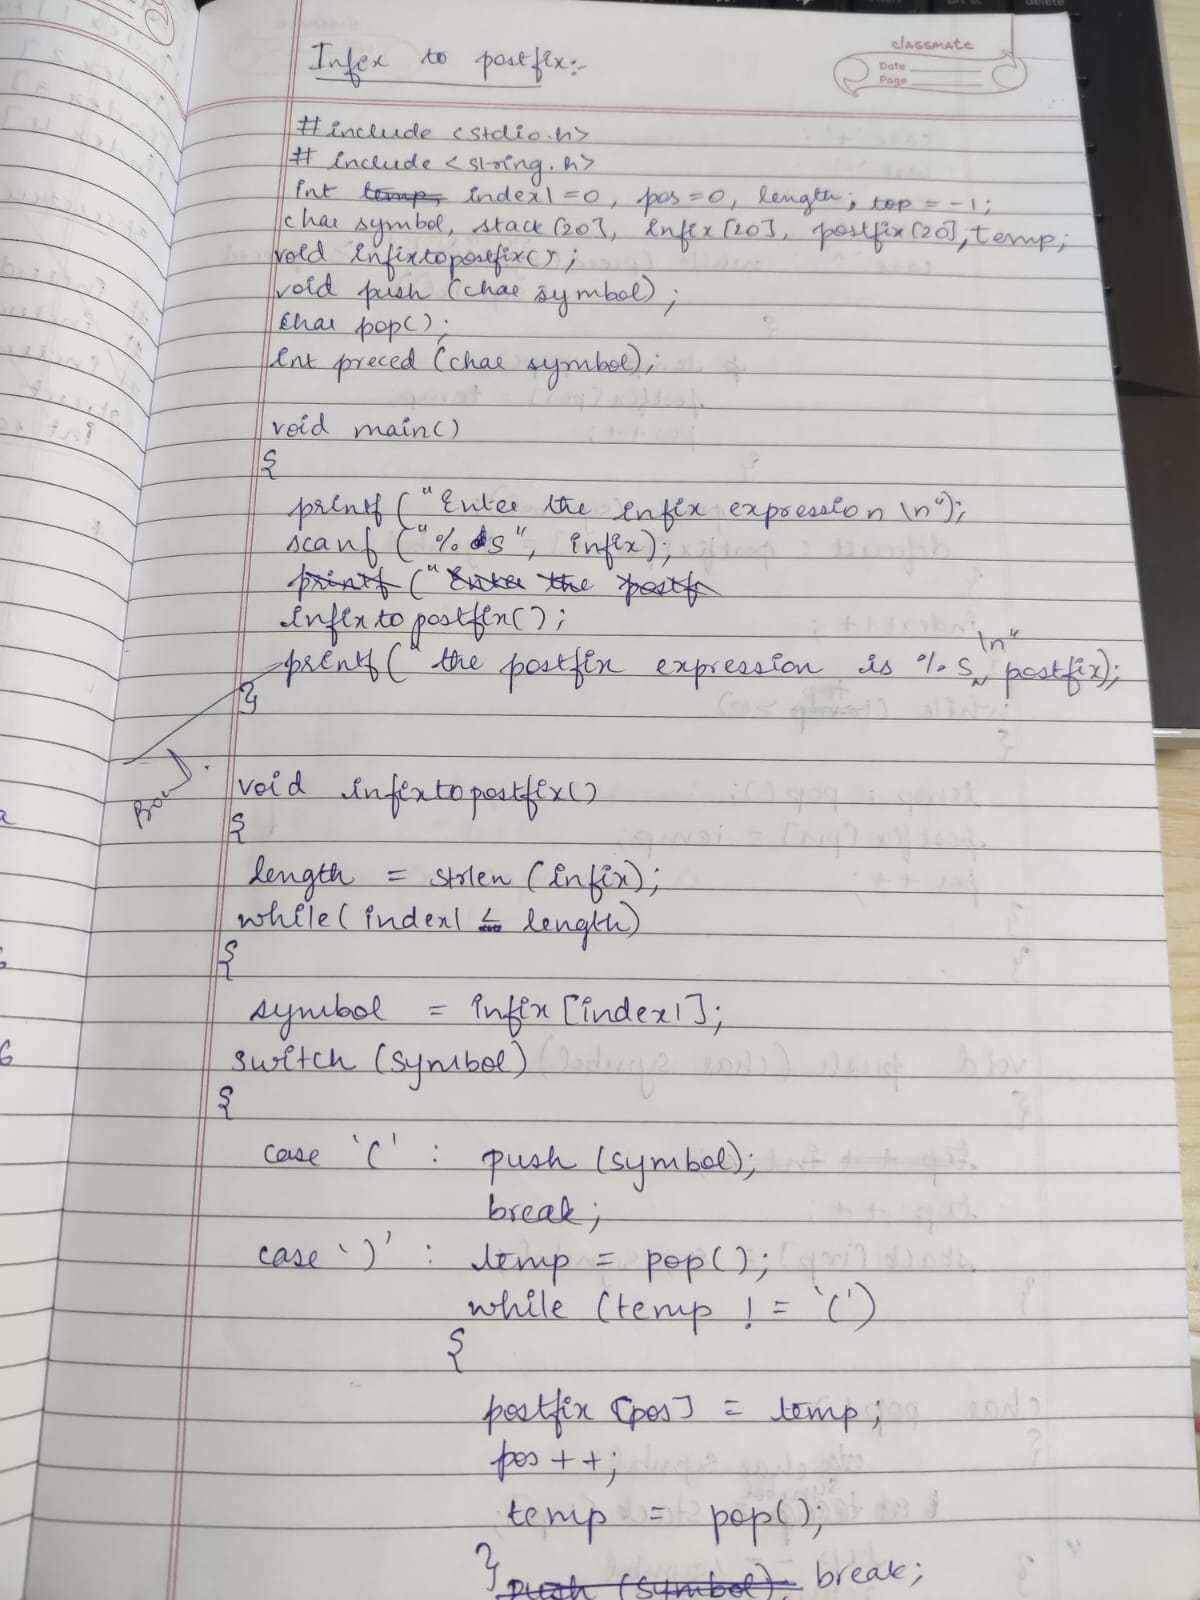 classmate
Date
Page
Infix to postfix:-
#include <stdio.h>
# include <string.h>
int temp, index1 = 0, pos = 0, length; top = -1;
char symbol, stack [20], infix [20], postfix [20], temp;
void infixtopostfix();
void push (char symbol);
char pop();
int preced (char symbol);
void main()
{
printf ("Enter the infix expression \n");
scanf ("% s", infix);
printf ("Enter the postf
infixtopostfix();
printf ("the postfix expression is % s \n", postfix);
}
void infixtopostfix()
{
length = strlen (infix);
while( index1 < length)
{
symbol = infix [index1];
switch (symbol)
{
case '(' : push (symbol);
break;
case ')' : temp = pop();
while (temp ! = '(')
{
postfix [pos] = temp;
pos + +;
temp = pop();
} push (symbol); break;